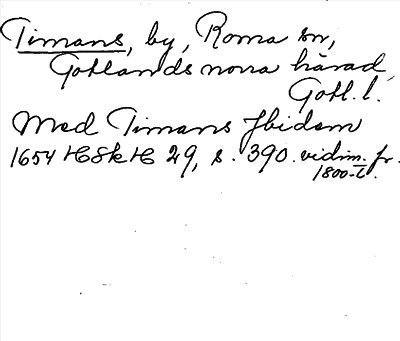 Timans, by, Roma sn,
Gotlands norra härad,
Gotl. l.
Med Timans Ibidem
1654 HSkH 29, s. 390. vidim. fr.
1800-t.